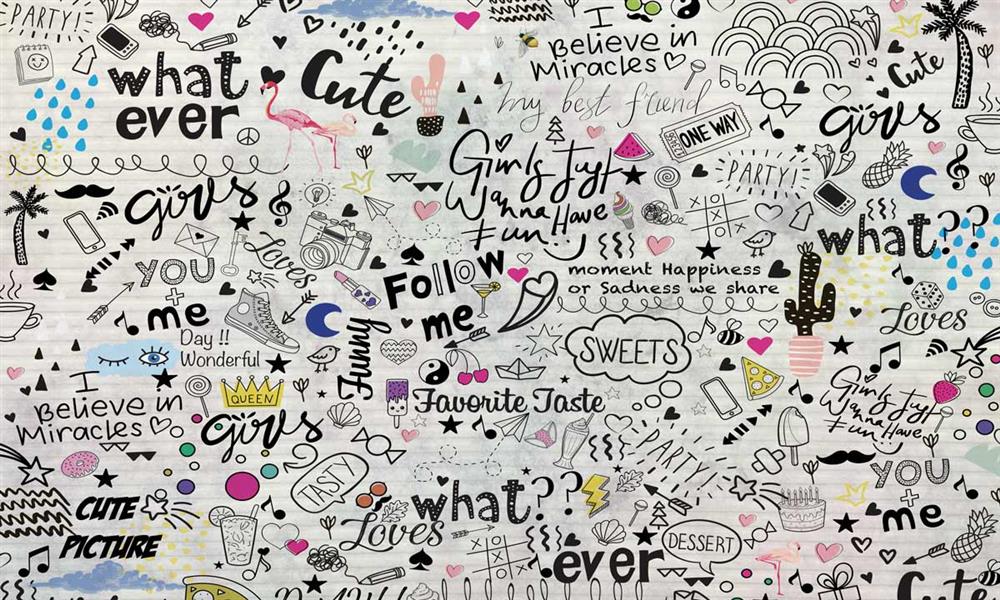 PARTY!
what
ever
Cute
I
Believe in
Miracles
my best friend
Cute
girls
ONE WAY
Girls Just
Wanna Have
Fun
PARTY!
girls
what??
YOU
+
me
Loves
Follow
me
moment Happiness
or Sadness we share
Day !!
Wonderful
Funny
SWEETS
Loves
QUEEN
Favorite Taste
I
Believe in
Miracles
girls
Girls Just
Wanna Have
Fun
PARTY!
YOU
+
me
TASTY
CUTE
PICTURE
what??
Loves
.ever
DESSERT
Cute